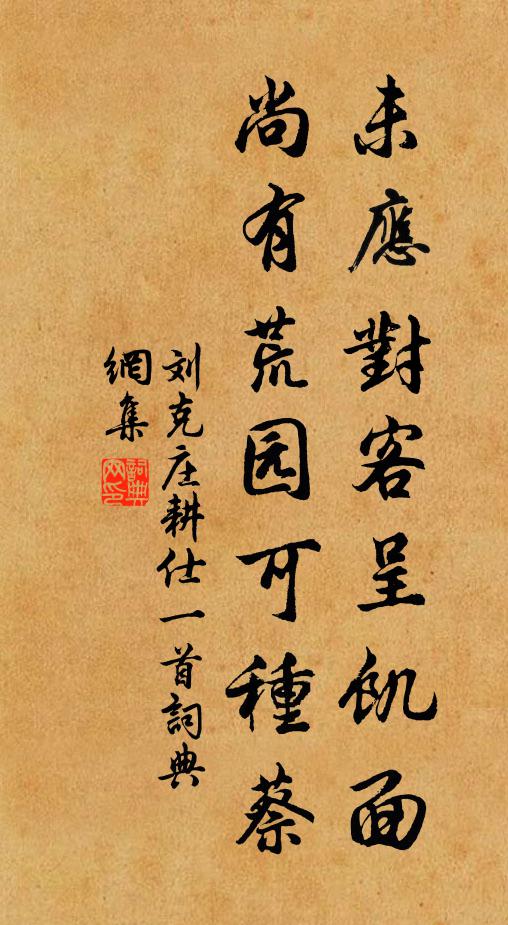 未應對客呈飢面
尚有荒园可種蔡
刘克庄耕仕一首詞典
網集
詞典
网印